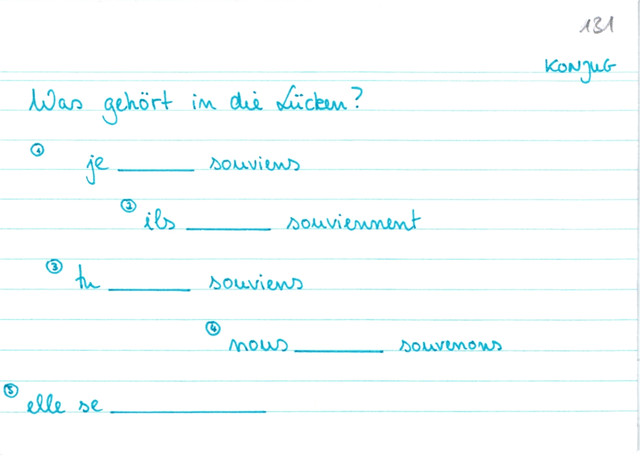 131
KONJUG
Was gehört in die Lücken?
① je ______ souviens
② ils ______ souviennent
③ tu ______ souviens
④ nous ______ souvenons
⑤ elle se ______